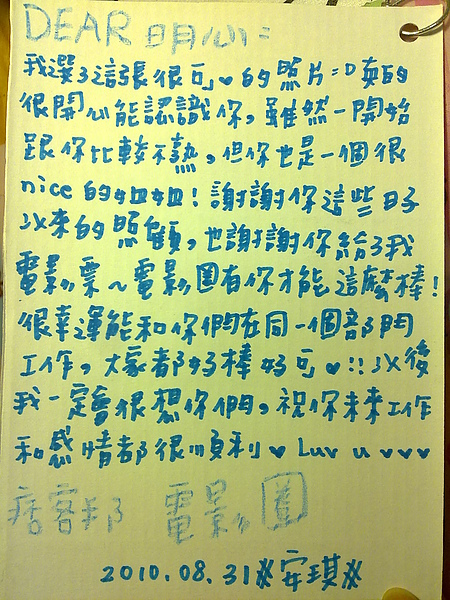 DEAR 明心：
我選了這張很可♥的照片=D 真的
很開心能認識你，雖然一開始
跟你比較不熟，但你也是一個很
nice 的姐姐！謝謝你這些日子
以來的照顧，也謝謝你給了我
電影票～電影圈有你才能這麼棒！
很幸運能和你們在同一個部門
工作，大家都好棒好可♥!! 以後
我一定會很想你們，祝你未來工作
和感情都很順利♥ Luv u ♥♥♥
痞客邦 電影圈
2010.08.31 ※安琪※